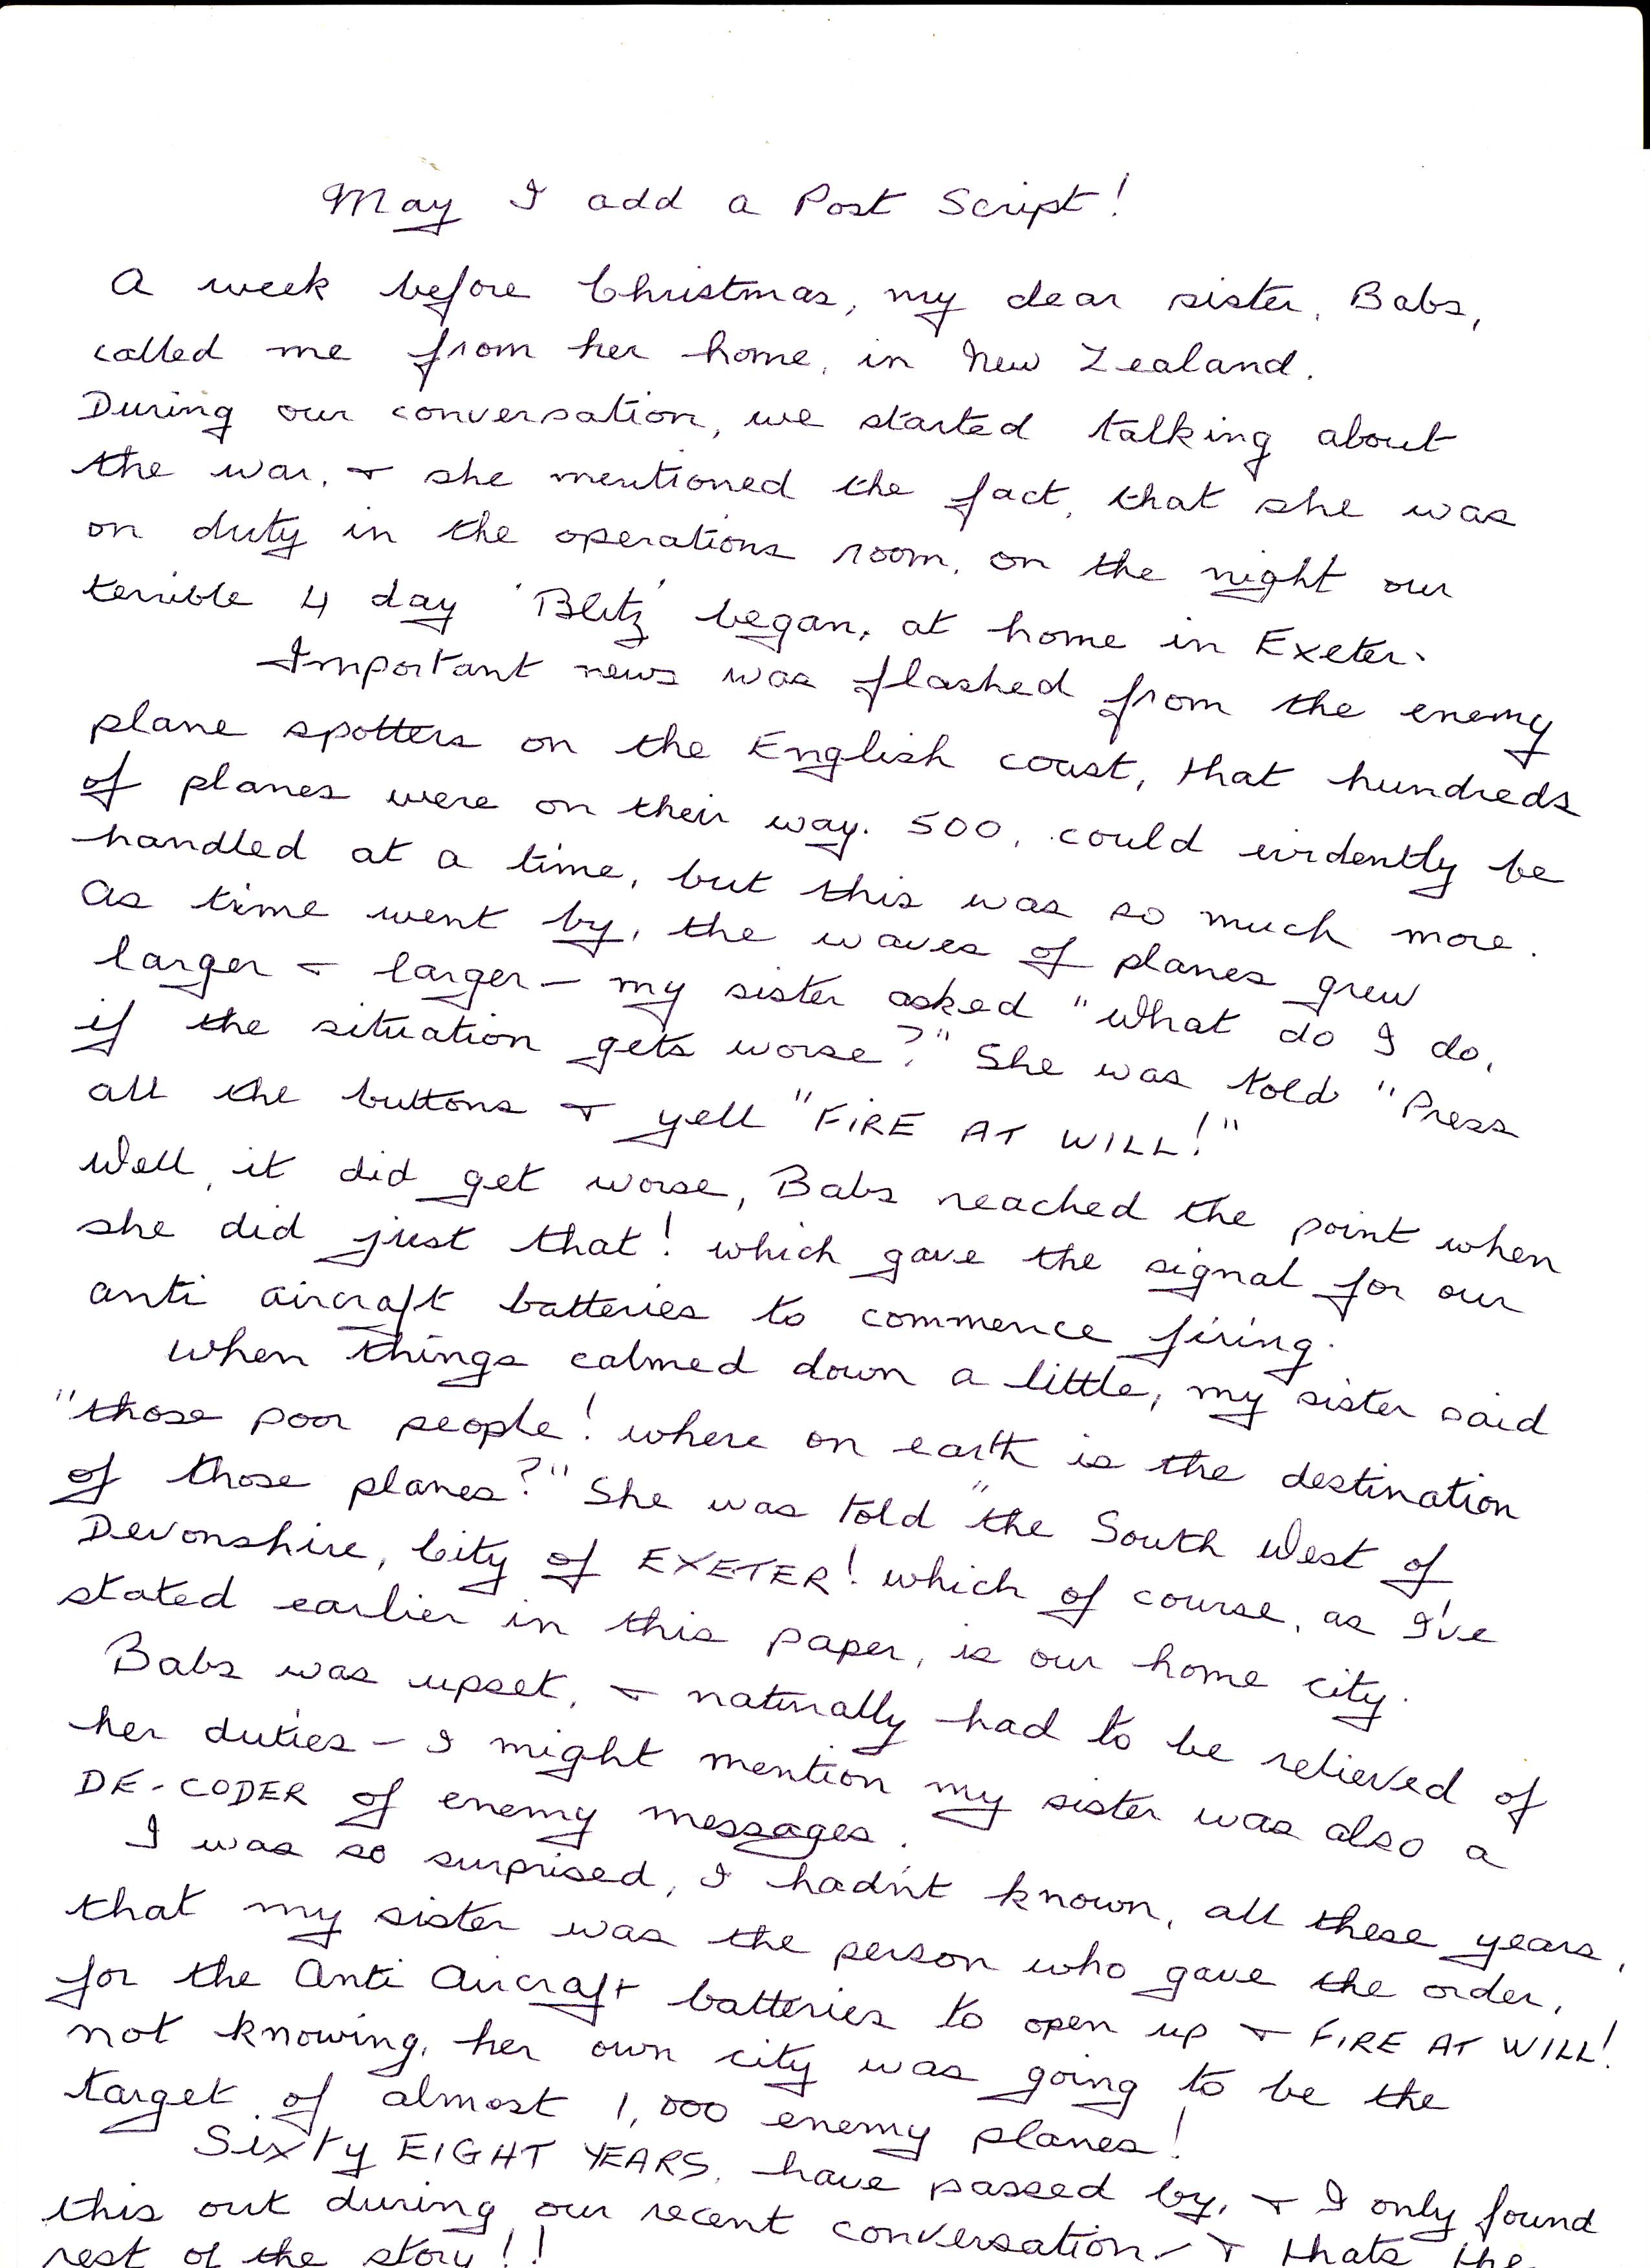 May I add a Post Script!
A week before Christmas, my dear sister, Babs,
called me from her home, in New Zealand.
During our conversation, we started talking about
the war, & she mentioned the fact, that she was
on duty in the operations room, on the night our
terrible 4 day 'Blitz' began, at home in Exeter.
Important news was flashed from the enemy
plane spotters on the English coast, that hundreds
of planes were on their way. 500, could evidently be
handled at a time, but this was so much more.
As time went by, the waves of planes grew
larger & larger - my sister asked "What do I do,
if the situation gets worse?" She was told "Press
all the buttons & yell "FIRE AT WILL!"
Well, it did get worse, Babs reached the point when
she did just that! which gave the signal for our
anti aircraft batteries to commence firing.
When things calmed down a little, my sister said
"those poor people! where on earth is the destination
of those planes?" She was told "the South West of
Devonshire, City of EXETER! which of course, as I've
stated earlier in this paper, is our home city.
Babs was upset, & naturally had to be relieved of
her duties - I might mention my sister was also a
DE-CODER of enemy messages.
I was so surprised, I hadn't known, all these years,
that my sister was the person who gave the order,
for the Anti Aircraft batteries to open up & FIRE AT WILL!
not knowing, her own city was going to be the
target of almost 1,000 enemy planes!
Sixty EIGHT YEARS, have passed by, & I only found
this out during our recent conversation - & thats the
rest of the story!!